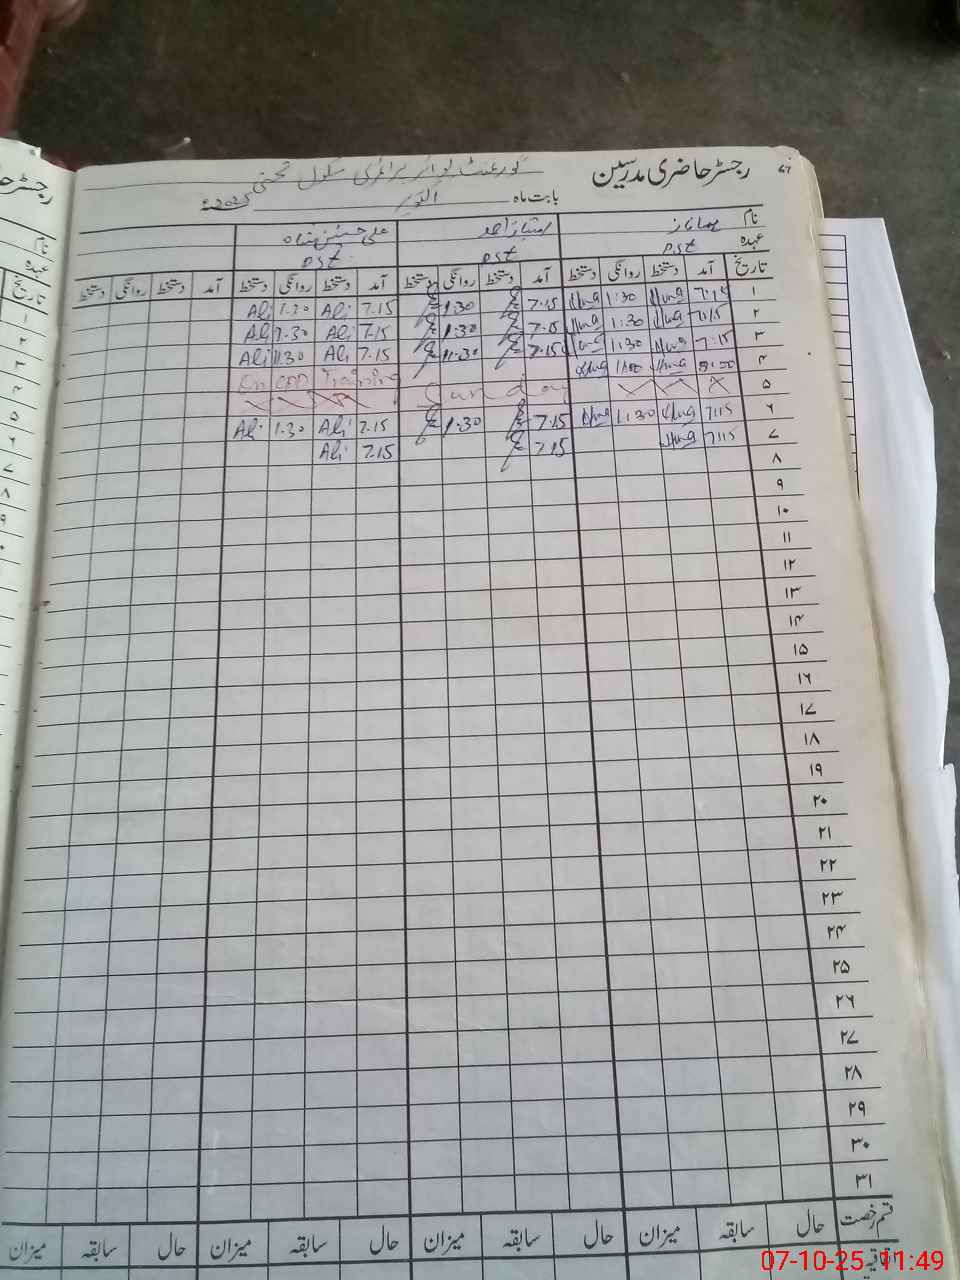 رجسٹر حاضری مدرسین ٦٧
گورنمنٹ بوائز پرائمری سکول
بابت ماہ اکتوبر 2025ء
نام امتیاز احمد علی حسنین شاہ
عہدہ PST PST PST
تاریخ آمد دستخط روانگی دستخط آمد دستخط روانگی دستخط آمد دستخط روانگی دستخط آمد دستخط روانگی دستخط
۱ 7:15 1:30 7.15 1.30 7.15 Ali 1.30 Ali
۲ 7:15 1:30 7.15 1.30 7.15 Ali 1.30 Ali
۳ 7:15 1:30 7.15 11.30 7.15 Ali 11.30 Ali
۴ On CPD Training
۵ Sunday
۶ 7:15 1:30 7.15 1.30 7.15 Ali 1.30 Ali
۷ 7:15 7.15 7.15 Ali
۸
۹
۱۰
۱۱
۱۲
۱۳
۱۴
۱۵
۱۶
۱۷
۱۸
۱۹
۲۰
۲۱
۲۲
۲۳
۲۴
۲۵
۲۶
۲۷
۲۸
۲۹
۳۰
۳۱
قسم رخصت حال سابقہ میزان حال سابقہ میزان حال سابقہ میزان حال سابقہ میزان
07-10-25 11:49